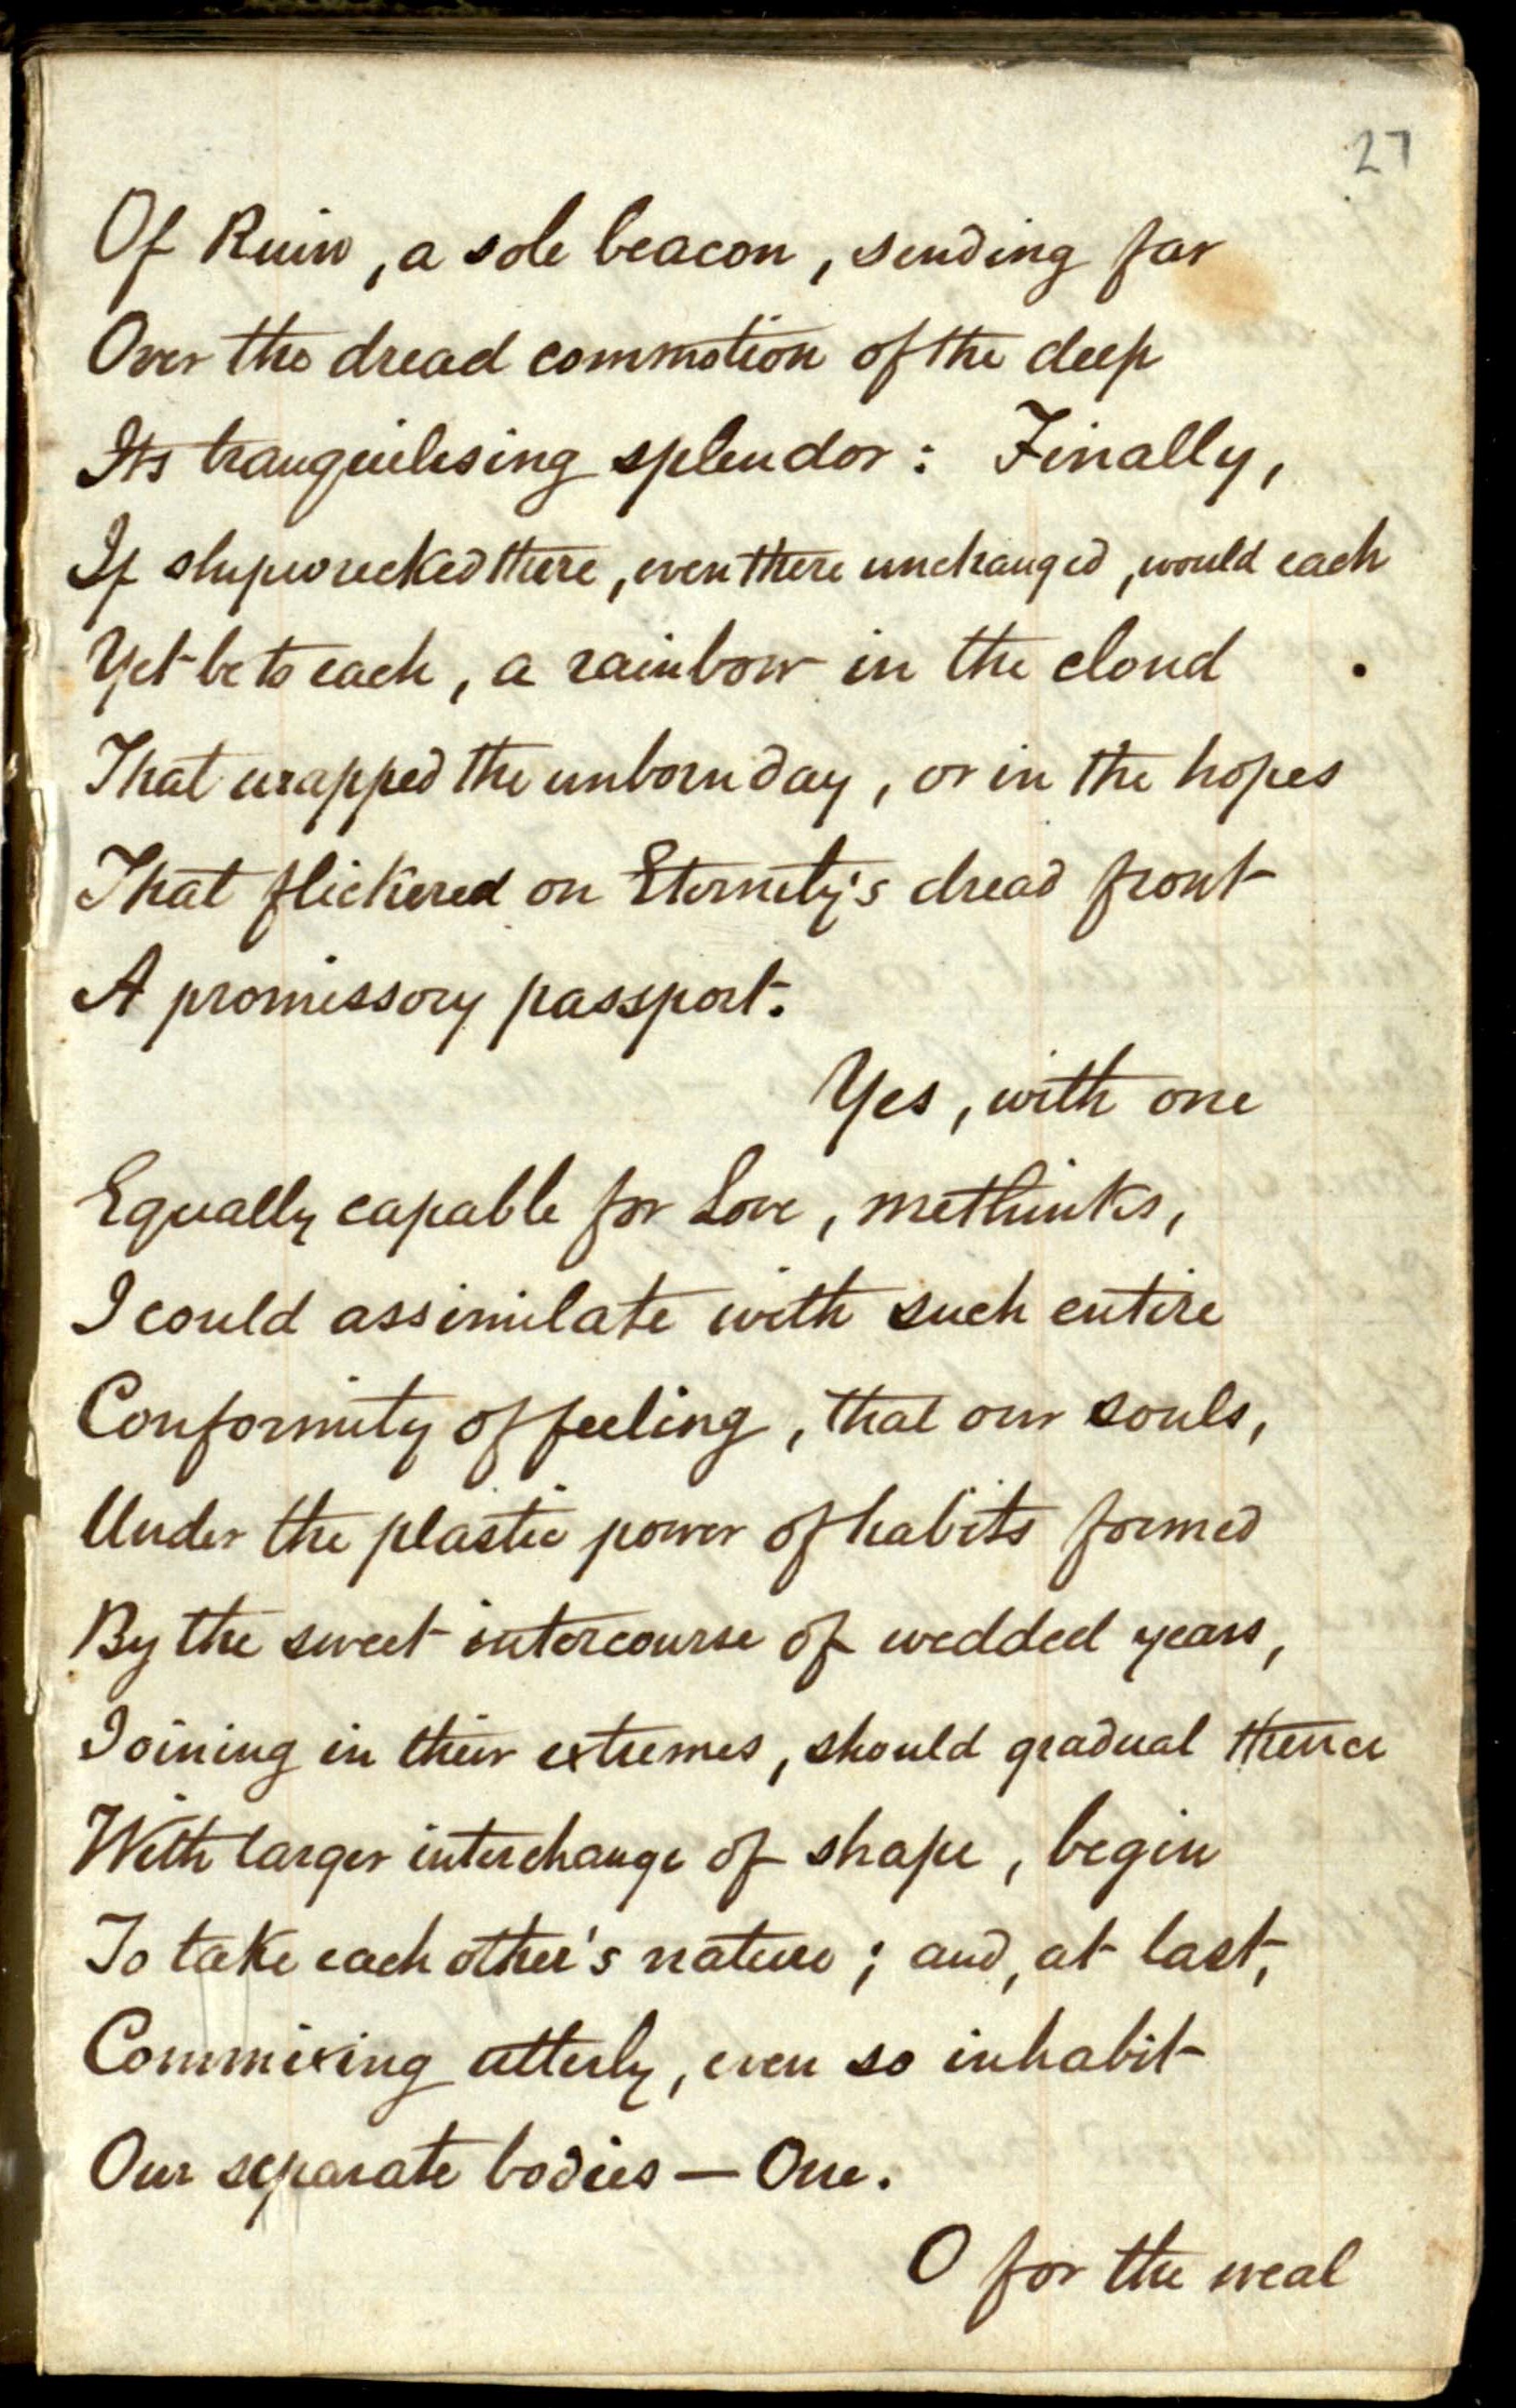 27
Of Ruin, a sole beacon, sending far
Over the dread commotion of the deep
Its tranquilising splendor: Finally,
If shipwrecked there, even there unchanged, would each
Yet be to each, a rainbow in the cloud
That wrapped the unborn day, or in the hopes
That flickered on Eternity's dread front
A promissory passport.
Yes, with one
Equally capable for Love, methinks,
I could assimilate with such entire
Conformity of feeling, that our souls,
Under the plastic power of habits formed
By the sweet intercourse of wedded years,
Joining in their extremes, should gradual thence
With larger interchange of shape, begin
To take each other's nature; and, at last,
Commixing utterly, even so inhabit
Our separate bodies — One.
O for the weal